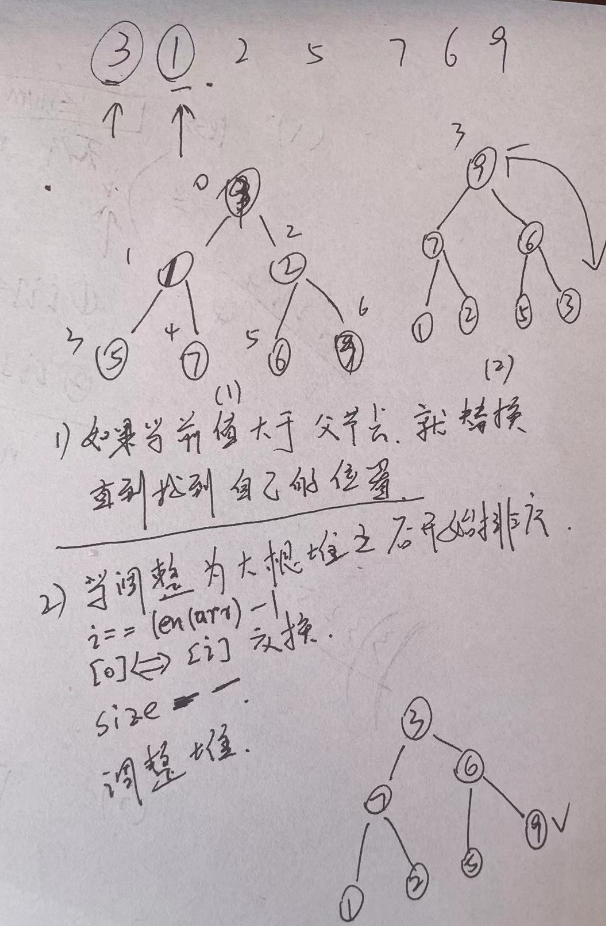 3 1 2 5 7 6 9
0
1 2
1 2
3 4 5 6
5 7 6
(1)
3
9
7 6
1 2 5 3
(2)
1) 如果当前值大于父节点、就替换
直到找到自己的位置.
2) 当调整为大根堆之后开始排序.
i== len(arr) -1
[0]⇔[i] 交换.
size --.
调整堆.
3
7 6
1 2 5 9 ✓